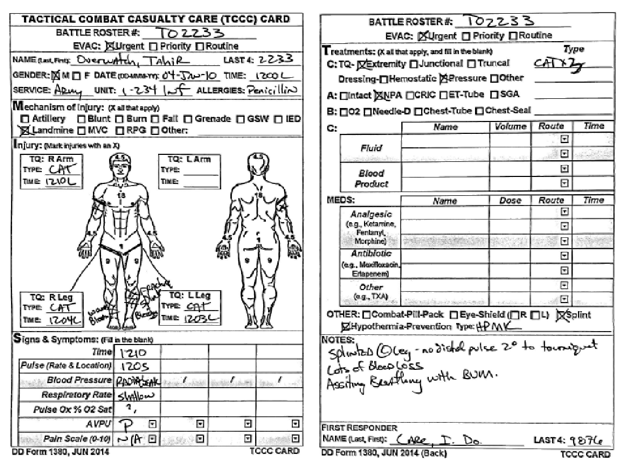 TACTICAL COMBAT CASUALTY CARE (TCCC) CARD
BATTLE ROSTER #: TO2233
EVAC: Urgent Priority Routine
NAME (Last, First): Overwatch, Tahir LAST 4: 2233
GENDER: M F DATE (DD-MMM-YY): 04-Jun-10 TIME: 1200L
SERVICE: Army UNIT: 1-234 Inf ALLERGIES: Penicillin
Mechanism of Injury: (X all that apply)
Artillery Blunt Burn Fall Grenade GSW IED
Landmine MVC RPG Other:
Injury: (Mark injuries with an X)
TQ: R Arm
TYPE: CAT
TIME: 1210L
TQ: L Arm
TYPE:
TIME:
4.5
18
4.5
4.5
1
9
9
TQ: R Leg
TYPE: CAT
TIME: 1204L
TQ: L Leg
TYPE: CAT
TIME: 1203L
Signs & Symptoms: (Fill in the blank)
Time 1210
Pulse (Rate & Location) 120S
Blood Pressure / / /
Respiratory Rate Shallow
Pulse Ox % O2 Sat ?
AVPU P
Pain Scale (0-10) N/A
DD Form 1380, JUN 2014 TCCC CARD
BATTLE ROSTER #: TO2233
EVAC: Urgent Priority Routine
Treatments: (X all that apply, and fill in the blank) Type
C: TQ- Extremity Junctional Truncal CAT x 3
Dressing- Hemostatic Pressure Other
A: Intact NPA CRIC ET-Tube SGA
B: O2 Needle-D Chest-Tube Chest-Seal
C: Name Volume Route Time
Fluid
Blood Product
MEDS: Name Dose Route Time
Analgesic
(e.g., Ketamine,
Fentanyl,
Morphine)
Antibiotic
(e.g., Moxifloxacin,
Ertapenem)
Other
(e.g., TXA)
OTHER: Combat-Pill-Pack Eye-Shield (R L) Splint
Hypothermia-Prevention Type: HPMK
NOTES:
Splinted (L) leg - no distal pulse 2° to tourniquet
Lots of Blood Loss
Assisting Breathing with BVM.
FIRST RESPONDER
NAME (Last, First): Care, I. Do. LAST 4: 9876
DD Form 1380, JUN 2014 (Back) TCCC CARD